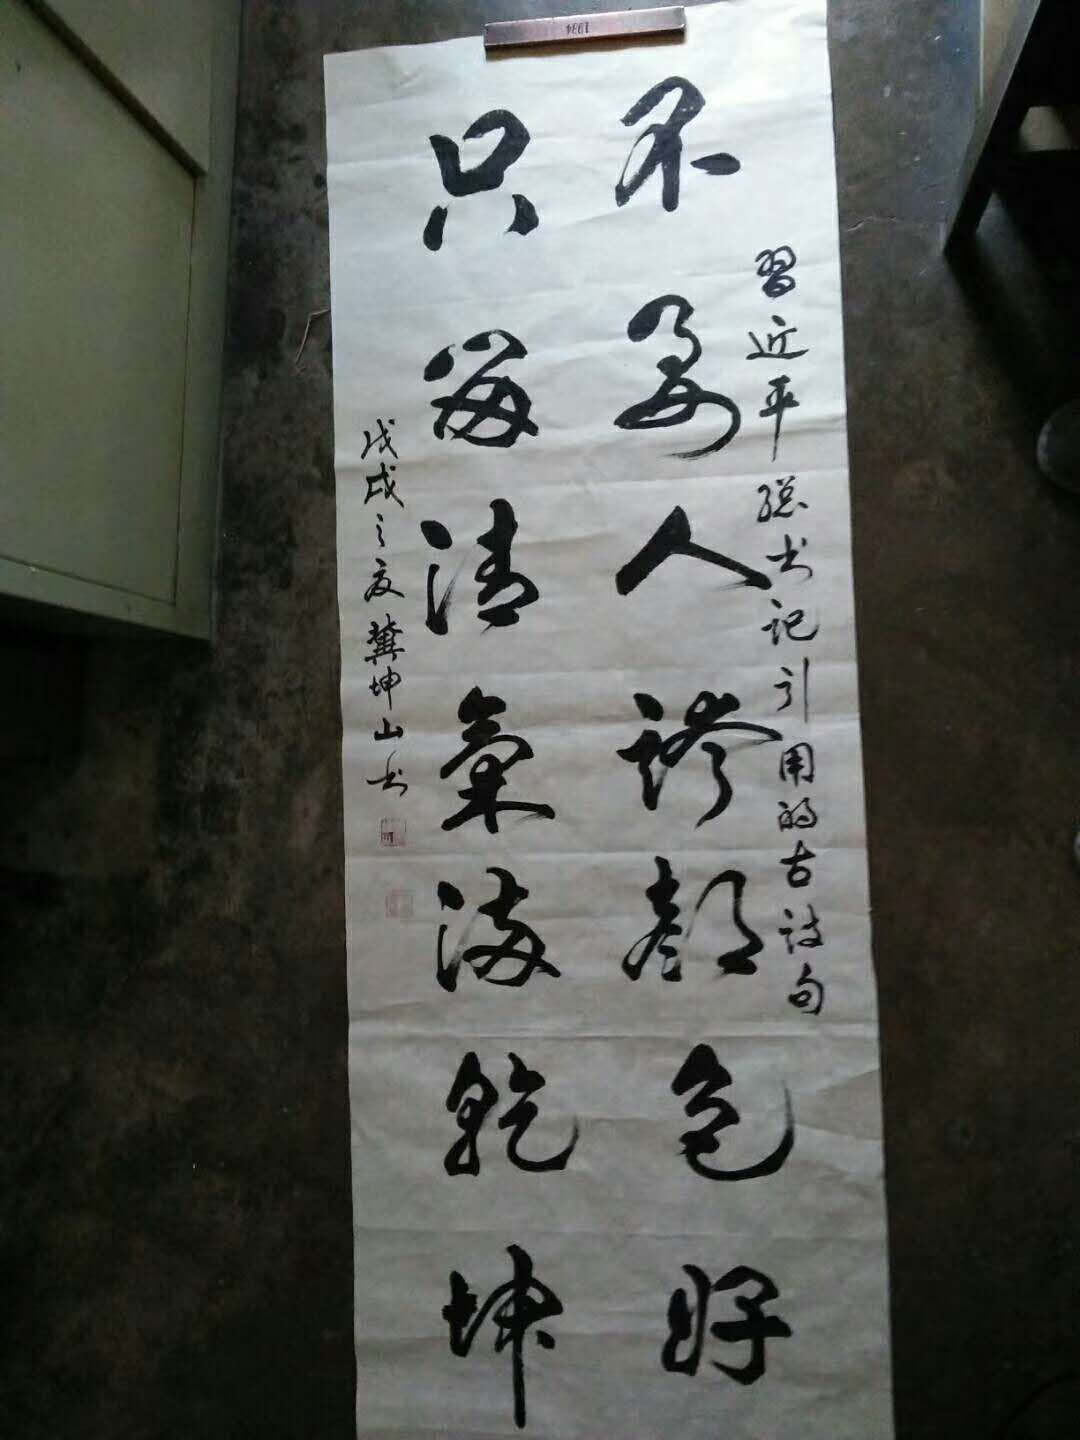 不要人誇颜色好
習近平總书记引用的古诗句
只留清氣满乾坤
戊戌之夏龚坤山书
1994